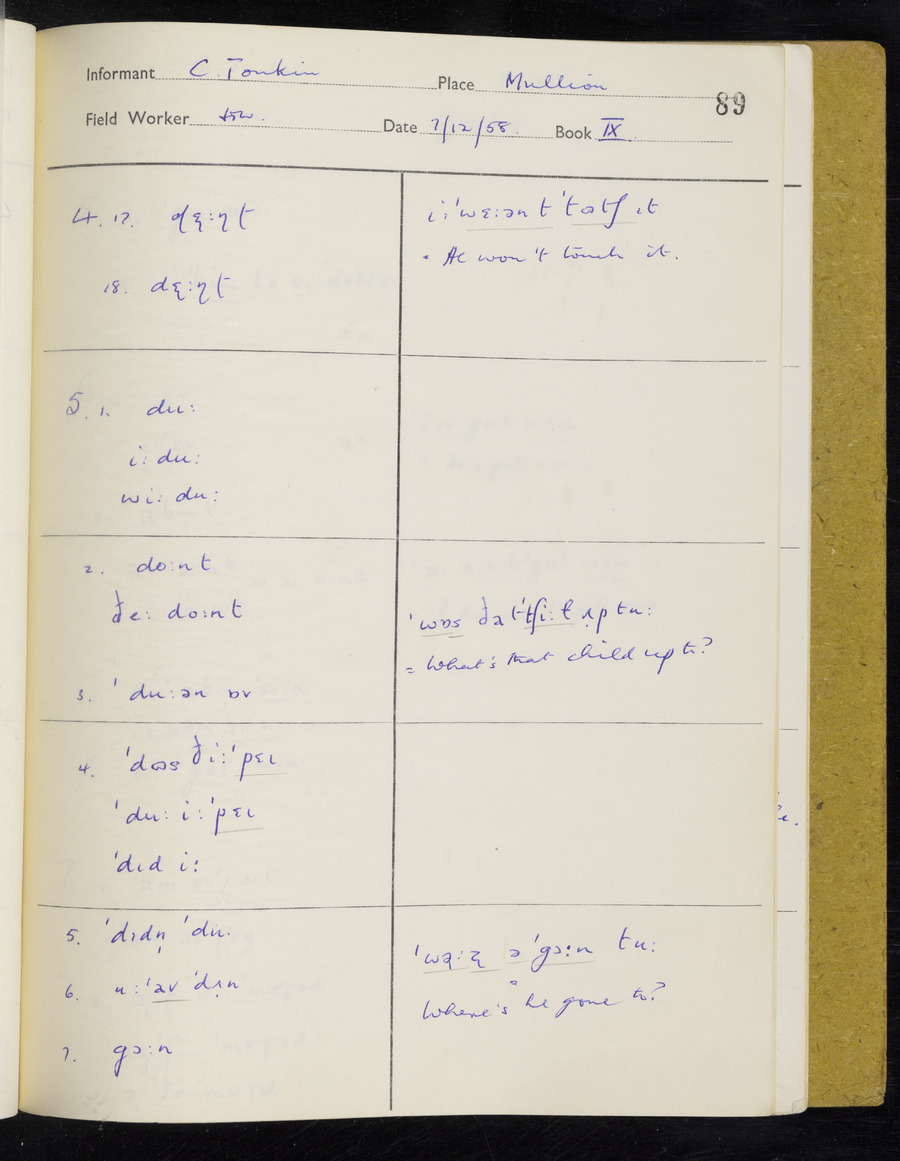 Informant C. Tonkin Place Mullion 89
Field Worker Date 7/12/58. Book IX
4. 17.
18.
iː ˈwɛːənt ˈtətʃ ɪt
= He won't touch it.
5. 1. duː
iː duː
wiː duː
2. doːnt
ðeː doːnt
3. ˈduːən ɒv
= What's that child up to?
4. ˈdəz ðiː ˈpɛɪ
ˈduː iː ˈpɛɪ
ˈdɪd iː
5. ˈdɪdn̩ ˈduː
6. uː ˈəv ˈdɪn
7. gɔːn
ə ˈgɔːn tuː
Where's he gone to?